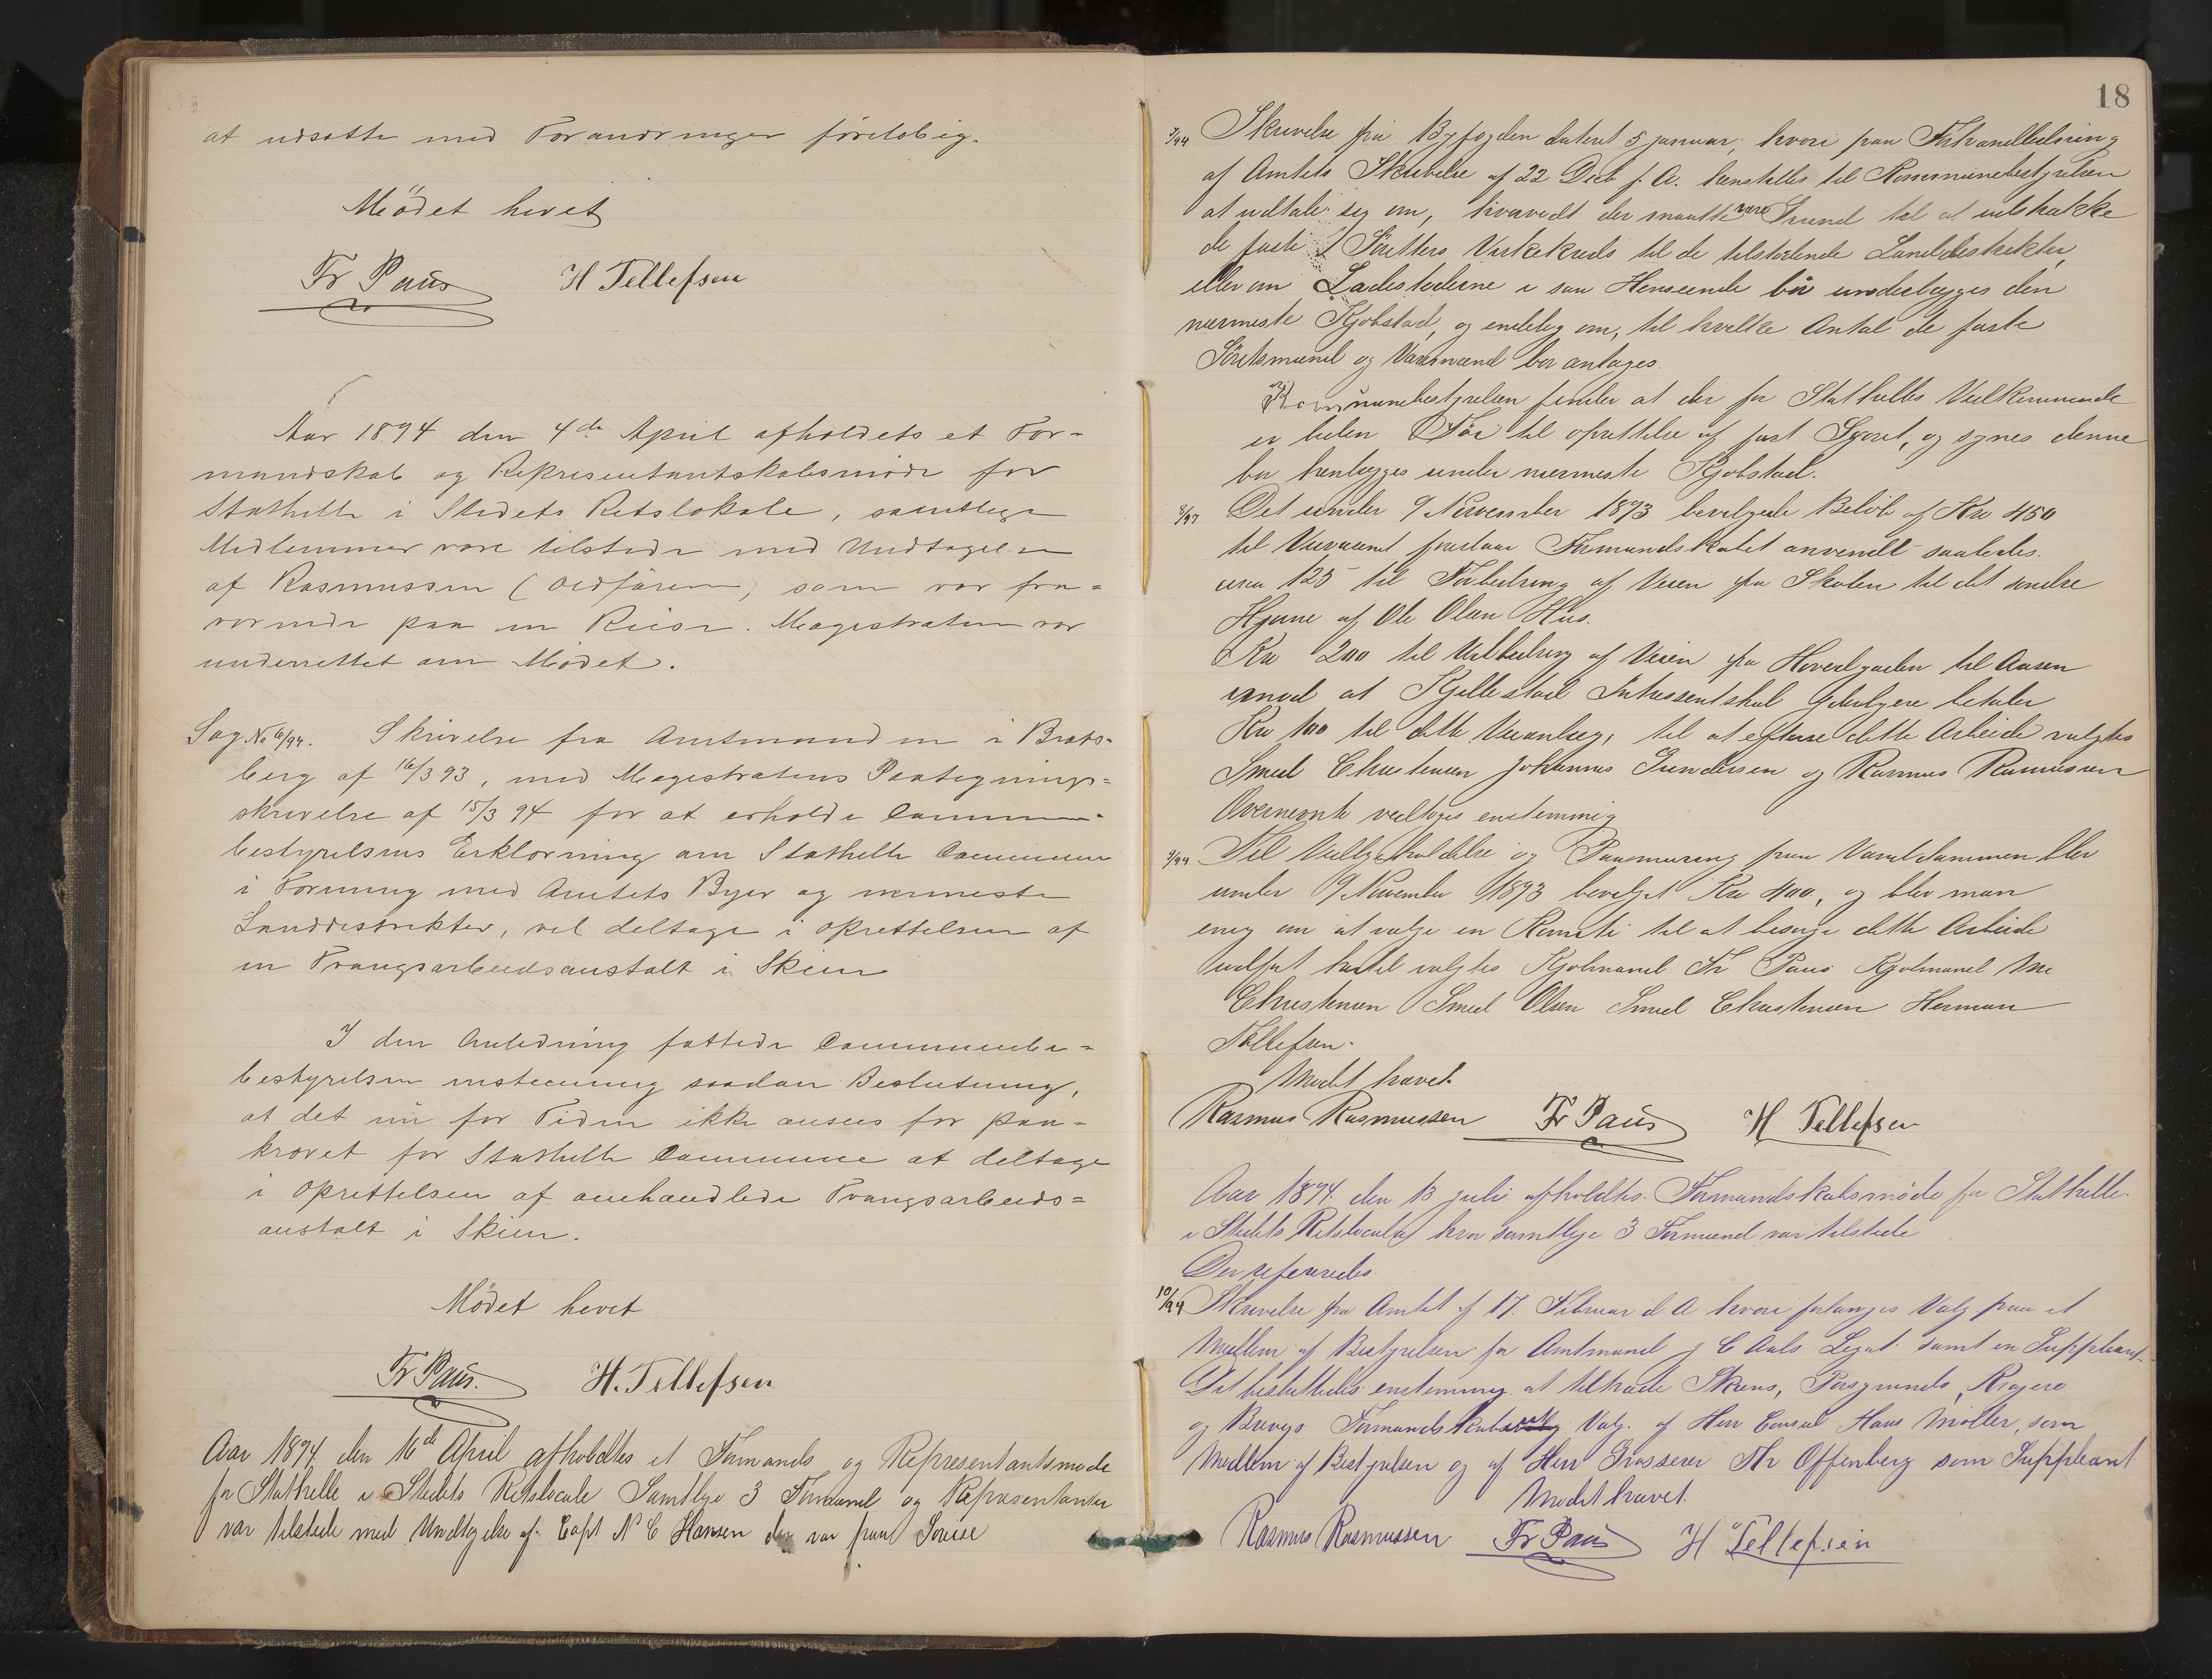 at udsætte med Forandringer foreløbig.
Mödet hevet
Fr Paus H Tellefsen
Aar 1894 den 4de April afholdets et For-
mandskab og Representantskabsmöde for
Stathelle i Stedets Retslokale, samtlige
Medlemmer vare tilstede med Undtagelse
af Rasmussen (Ordfører) som var fra-
værende paa en Reise. Magistraten var
underrettet om Mödet.
Sag No 6/94. Skrivelse fra Amtmanden i Brats-
berg af 16/3 93, med Magistratens Paategnings-
skrivelse af 15/3 94 for at erholde Commune-
bestyrelsens Erklæring om Stathelle Commune
i Forening med Amtets Byer og nærmeste
Landdistrikter, vil deltage i Oprettelsen af
en Tvangsarbeidsanstalt i Skien
I den Anledning fattede Communebe-
bestyrelsen enstemmig saadan Beslutning,
at det nü for Tiden ikke ansees for paa-
krævet for Stathelle Commune at deltage
i Oprettelsen af omhandlede Tvangsarbeids-
anstalt i Skien.
Mödet hevet
Fr Paus. H. Tellefsen
Aar 1894 den 16de April afholdtes et Formands og Representantsmøde
for Stathelle i Stedets Retslocale Samtlige 3 Formænd og Representanter
var tilstede med Undtagelse af Capt N C Hansen der var paa
18
7/94 Skrivelse fra Byfogden dateret 5 januar, hvori paa Foranledning
af Amtets Skrivelse af 22 Decb f. A. henstilles til Kommunebestyrelsen
at udtale sig om, hvorvidt der maatte være Grund til at udstrække
de faste Söretters Virkekreds til de tilstødende Landdistrikter,
eller om Ladestederne i saa Henseende bör underlægges den
nærmeste Kjøbstad, og endelig om, til hvilke Antal de faste
Söretsmænd og Varamænd bør antages.
Kommunebestyrelsen finder at der for Stathelles Vedkommende
er liden til oprettelse af fast Syøret, og synes denne
bør henlægges under nærmeste Kjøbstad.
8/94 Det under 9 November 1893 bevilgede Beløb af Kr 450
til Veivæsenet foreslaar Formandskabet anvendt saaledes.
125 til Forbedring af Veien fra Skolen til det søndre
Hjørne af Ole Olsen Hus.
Kr 200 til Udbedring af Veien fra Hovedgaden til Aasen
imod at Kjellestad Intressentskab betaler
Kr 100 til dette Veianlæg, til at efterse dette Arbeide valgtes
Smed Christensen Johannes Gundersen og Rasmus Rasmussen
Overnevnte vedtoges enstemmig
9/94 Til Vedligeholdelse og Paamuring paa Vanddammen blev
under 9 November 1893 bevilget Kr 400, og blev man
enig om at vælge en Komite til at besørge dette Arbeide
udført hertil valgtes Kjøbmand Fr Paus Kjøbmand
Christensen Smed Olsen Smed Christensen Herman
Tellefsen.
Mødet hævet.
Rasmus Rasmussen Fr Paus H Tellefsen
Aar 1894 den 13 juli afholdtes Formandskabsmöde for Stathelle
i Stedets Retslocale hvor samtlige 3 Formænd var tilstede
Der refereredes.
10/94 Skrivelse fra Amtet af 17. Februar d A hvori forlanges Valg paa et
Medlem af Bestyrelsen for Amtmand J C Aals Legat samt en Suppleant.
Det besluttedes enstemmig at tiltræde Skiens, Porsgrunds, Kragerø
og Brevigs Formandskabs Valg af Herr Consul Hans Möller, som
Medlem af Bestyrelsen og af Herr Grosserer Th Offenberg som Suppleant
Mødet hævet.
Rasmus Rasmussen Fr Paus H Tellefsen